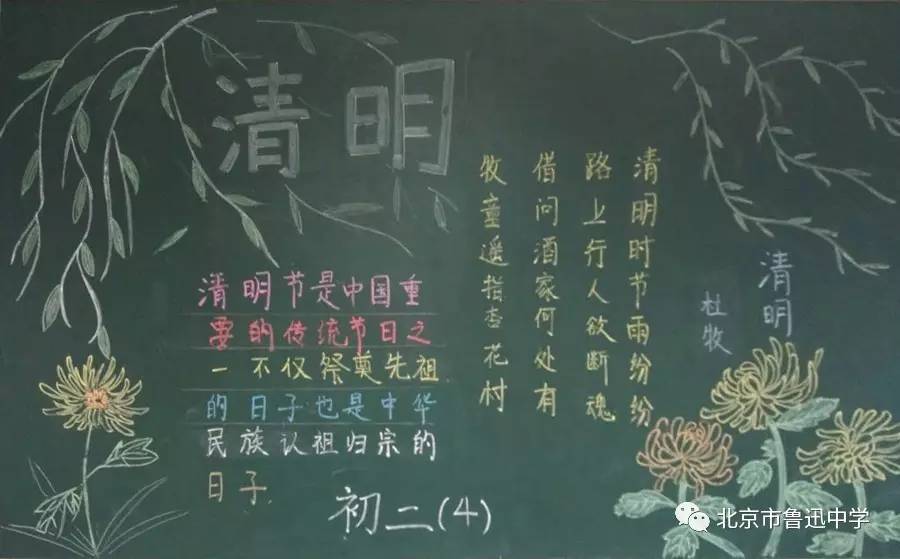 清明
清明节是中国重
要的传统节日之
一不仅祭奠先祖
的日子也是中华
民族认祖归宗的
日子
初二(4)
清明
杜牧
清明时节雨纷纷
路上行人欲断魂
借问酒家何处有
牧童遥指杏花村
北京市鲁迅中学